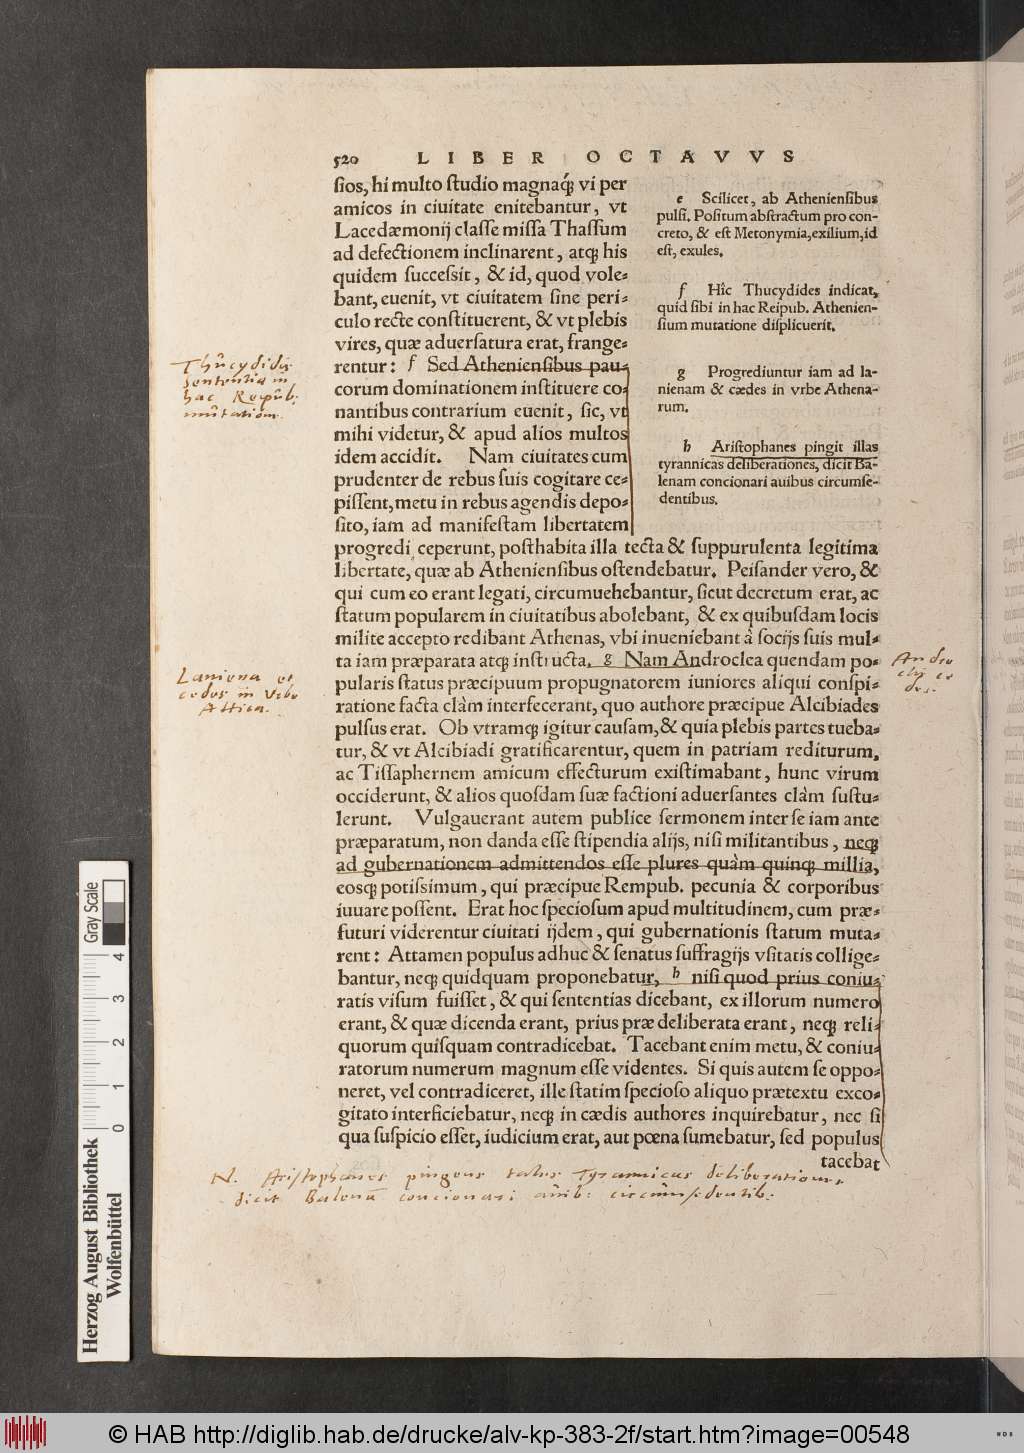 520 LIBER OCTAVVS
ſios, hi multo ſtudio magnaq́ꝫ vi per
amicos in ciuitate enitebantur, vt
Lacedæmonij claſſe miſſa Thaſſum
ad defectionem inclinarent, atqꝫ his
quidem ſucceſsit, & id, quod vole⸗
bant, euenit, vt ciuitatem ſine peri⸗
culo recte conſtituerent, & vt plebis
vires, quæ aduerſatura erat, frange⸗
rentur: f Sed Athenienſibus pau⸗
corum dominationem inſtituere co⸗
nantibus contrarium euenit, ſic, vt
mihi videtur, & apud alios multos
idem accidit. Nam ciuitates cum
prudenter de rebus ſuis cogitare ce⸗
piſſent, metu in rebus agendis depo⸗
ſito, iam ad manifeſtam libertatem
e Scilicet, ab Athenienſibus
pulſi. Poſitum abſtractum pro con-
creto, & eſt Metonymia, exilium, id
eſt, exules.
f Hîc Thucydides indicat,
quid ſibi in hac Reipub. Athenien-
ſium mutatione diſplicuerit.
g Progrediuntur iam ad la-
nienam & cædes in vrbe Athena-
rum.
h Ariſtophanes pingit illas
tyrannicas deliberationes, dicit Ba-
lenam concionari auibus circumſe-
dentibus.
progredi ceperunt, poſthabita illa tecta & ſuppurulenta legitima
libertate, quæ ab Athenienſibus oſtendebatur. Peiſander vero, &
qui cum eo erant legati, circumuehebantur, ſicut decretum erat, ac
ſtatum popularem in ciuitatibus abolebant, & ex quibuſdam locis
milite accepto redibant Athenas, vbi inueniebant à ſocijs ſuis mul⸗
ta iam præparata atqꝫ inſtructa. g Nam Androclea quendam po⸗
pularis ſtatus præcipuum propugnatorem iuniores aliqui conſpi⸗
ratione facta clàm interfecerant, quo authore præcipue Alcibiades
pulſus erat. Ob vtramqꝫ igitur cauſam, & quia plebis partes tueba⸗
tur, & vt Alcibiadi gratificarentur, quem in patriam rediturum,
ac Tiſſaphernem amicum effecturum exiſtimabant, hunc virum
occiderunt, & alios quoſdam ſuæ factioni aduerſantes clàm ſuſtu⸗
lerunt. Vulgauerant autem publice ſermonem inter ſe iam ante
præparatum, non danda eſſe ſtipendia alijs, niſi militantibus, neqꝫ
ad gubernationem admittendos eſſe plures quàm quinqꝫ millia,
eosqꝫ potiſsimum, qui præcipue Rempub. pecunia & corporibus
iuuare poſſent. Erat hoc ſpecioſum apud multitudinem, cum præ⸗
futuri viderentur ciuitati ijdem, qui gubernationis ſtatum muta⸗
rent: Attamen populus adhuc & ſenatus ſuffragijs vſitatis collige⸗
bantur, neqꝫ quidquam proponebatur, h niſi quod prius coniu⸗
ratis viſum fuiſſet, & qui ſententias dicebant, ex illorum numero
erant, & quæ dicenda erant, prius præ deliberata erant, neqꝫ reli⸗
quorum quiſquam contradicebat. Tacebant enim metu, & coniu⸗
ratorum numerum magnum eſſe videntes. Si quis autem ſe oppo⸗
neret, vel contradiceret, ille ſtatim ſpecioſo aliquo prætextu exco⸗
gitato interficiebatur, neqꝫ in cædis authores inquirebatur, nec ſi
qua ſuſpicio eſſet, iudicium erat, aut pœna ſumebatur, ſed populus
tacebat
Thucydidis
sententia in
hac Reipub:
mutatione.
Laniena et
cedes in Vrbe
Attica.
Andro
clij ce
des.
N. Aristophanes pingens tales Tyrannicas deliberationes,
dicit Balenā concionari auib: circumſedentib.
Gray Scale
0 1 2 3 4
Herzog August Bibliothek
Wolfenbüttel
© HAB http://diglib.hab.de/drucke/alv-kp-383-2f/start.htm?image=00548